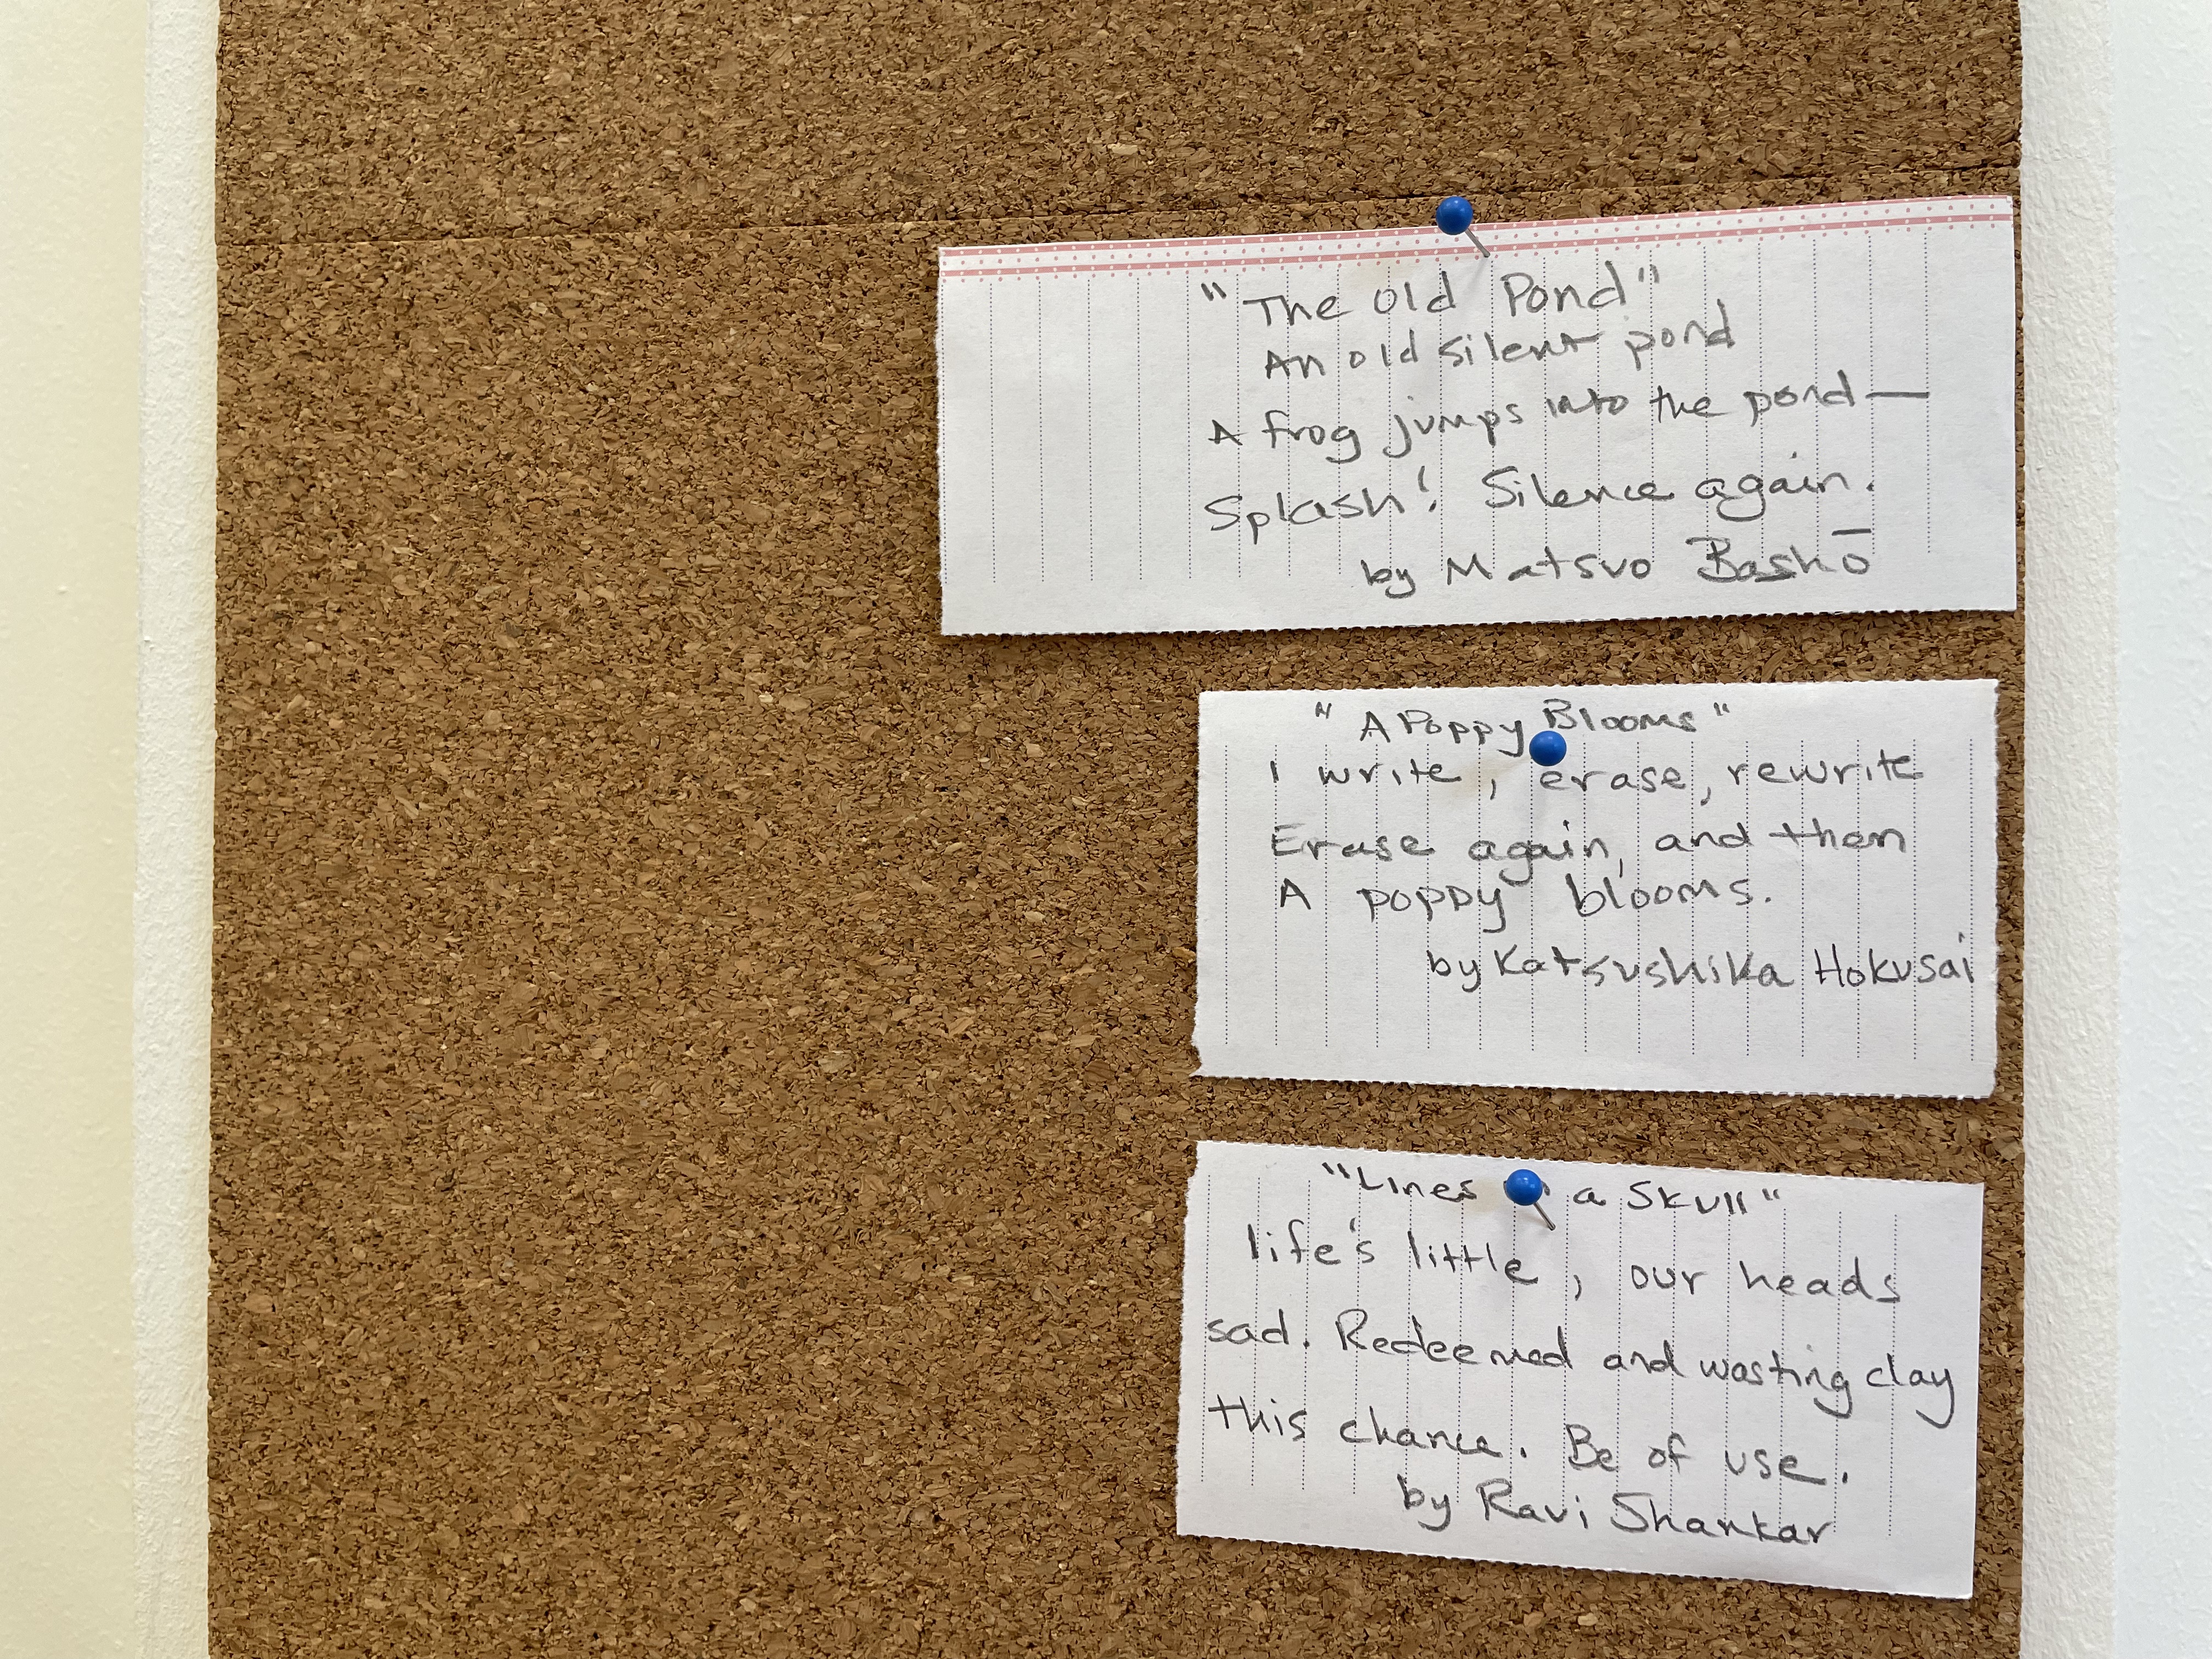 "The Old Pond"
An old silent pond
A frog jumps into the pond—
Splash! Silence again.
by Matsuo Bashō
"A Poppy Blooms"
I write, erase, rewrite
Erase again, and then
A poppy blooms.
by Katsushika Hokusai
"Lines a Skull"
life's little, our heads
sad. Redeemed and wasting clay
this chance. Be of use.
by Ravi Shankar